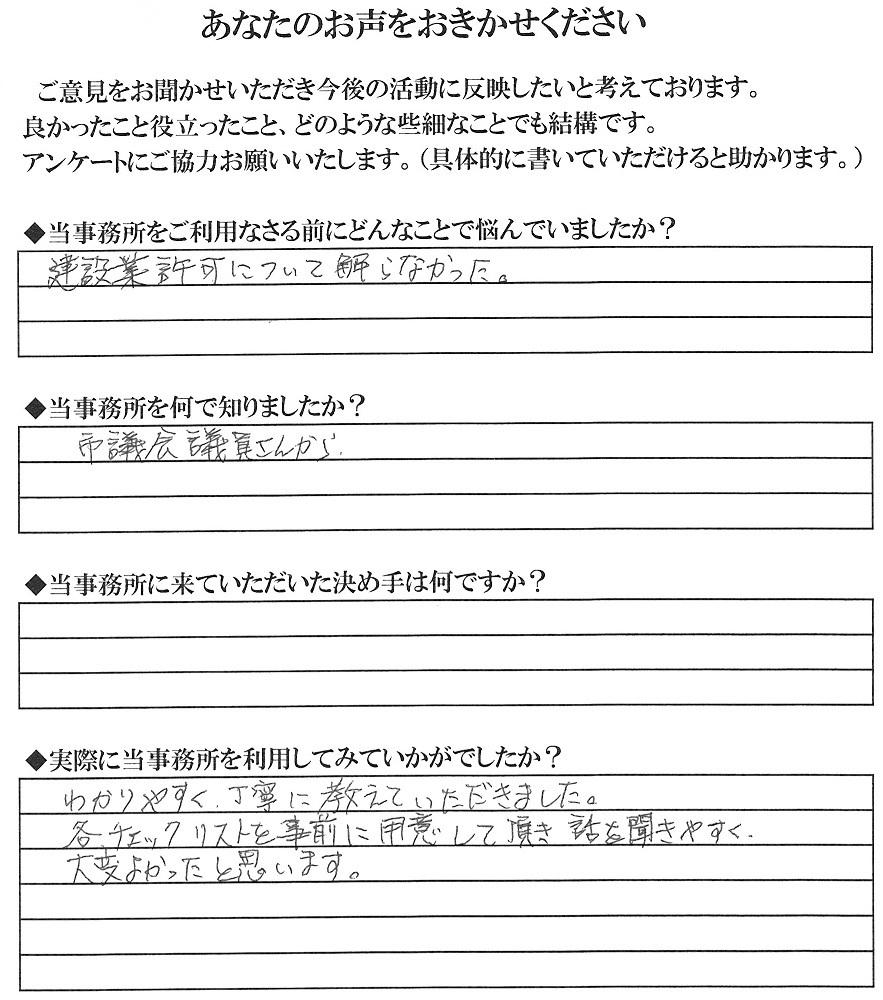 あなたのお声をおきかせください
ご意見をお聞かせいただき今後の活動に反映したいと考えております。
良かったこと役立ったこと、どのような些細なことでも結構です。
アンケートにご協力お願いいたします。（具体的に書いていただけると助かります。）
◆当事務所をご利用なさる前にどんなことで悩んでいましたか？
建設業許可について解らなかった。
◆当事務所を何で知りましたか？
市議会議員さんから.
◆当事務所に来ていただいた決め手は何ですか？
◆実際に当事務所を利用してみていかがでしたか？
わかりやすく、丁寧に教えていただきました。
各、チェックリストを事前に用意して頂き話を聞きやすく、
大変よかったと思います。